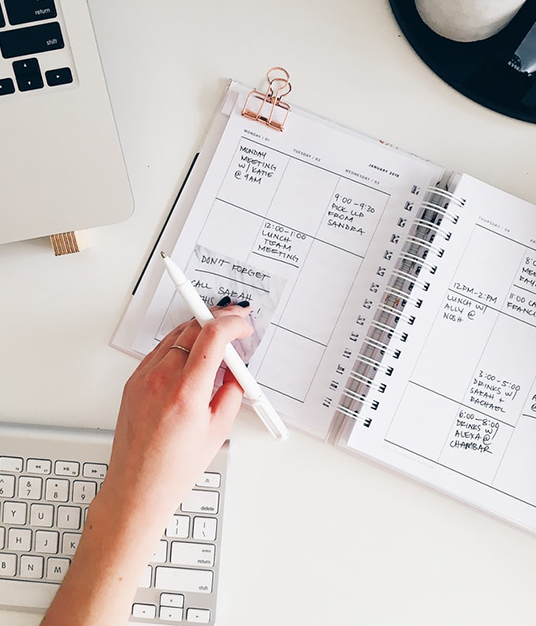 MONDAY / 01
TUESDAY / 02
WEDNESDAY / 03
JANUARY 2018
MONDAY
MEETING
W/ KATIE
@ 9AM
9:00-9:30
PICK UP
FROM
SANDRA
12:00-1:00
LUNCH
TEAM
MEETING
DON'T FORGET
CALL SARAH
THURSDAY / 04
12PM-2PM
LUNCH W/
ALLY @
NOSH
3:00-5:00
DRINKS W/
SARAH +
RACHAEL
6:00-8:00
DRINKS W/
ALEXA @
CHAMBAR
return
shift
delete
return
shift